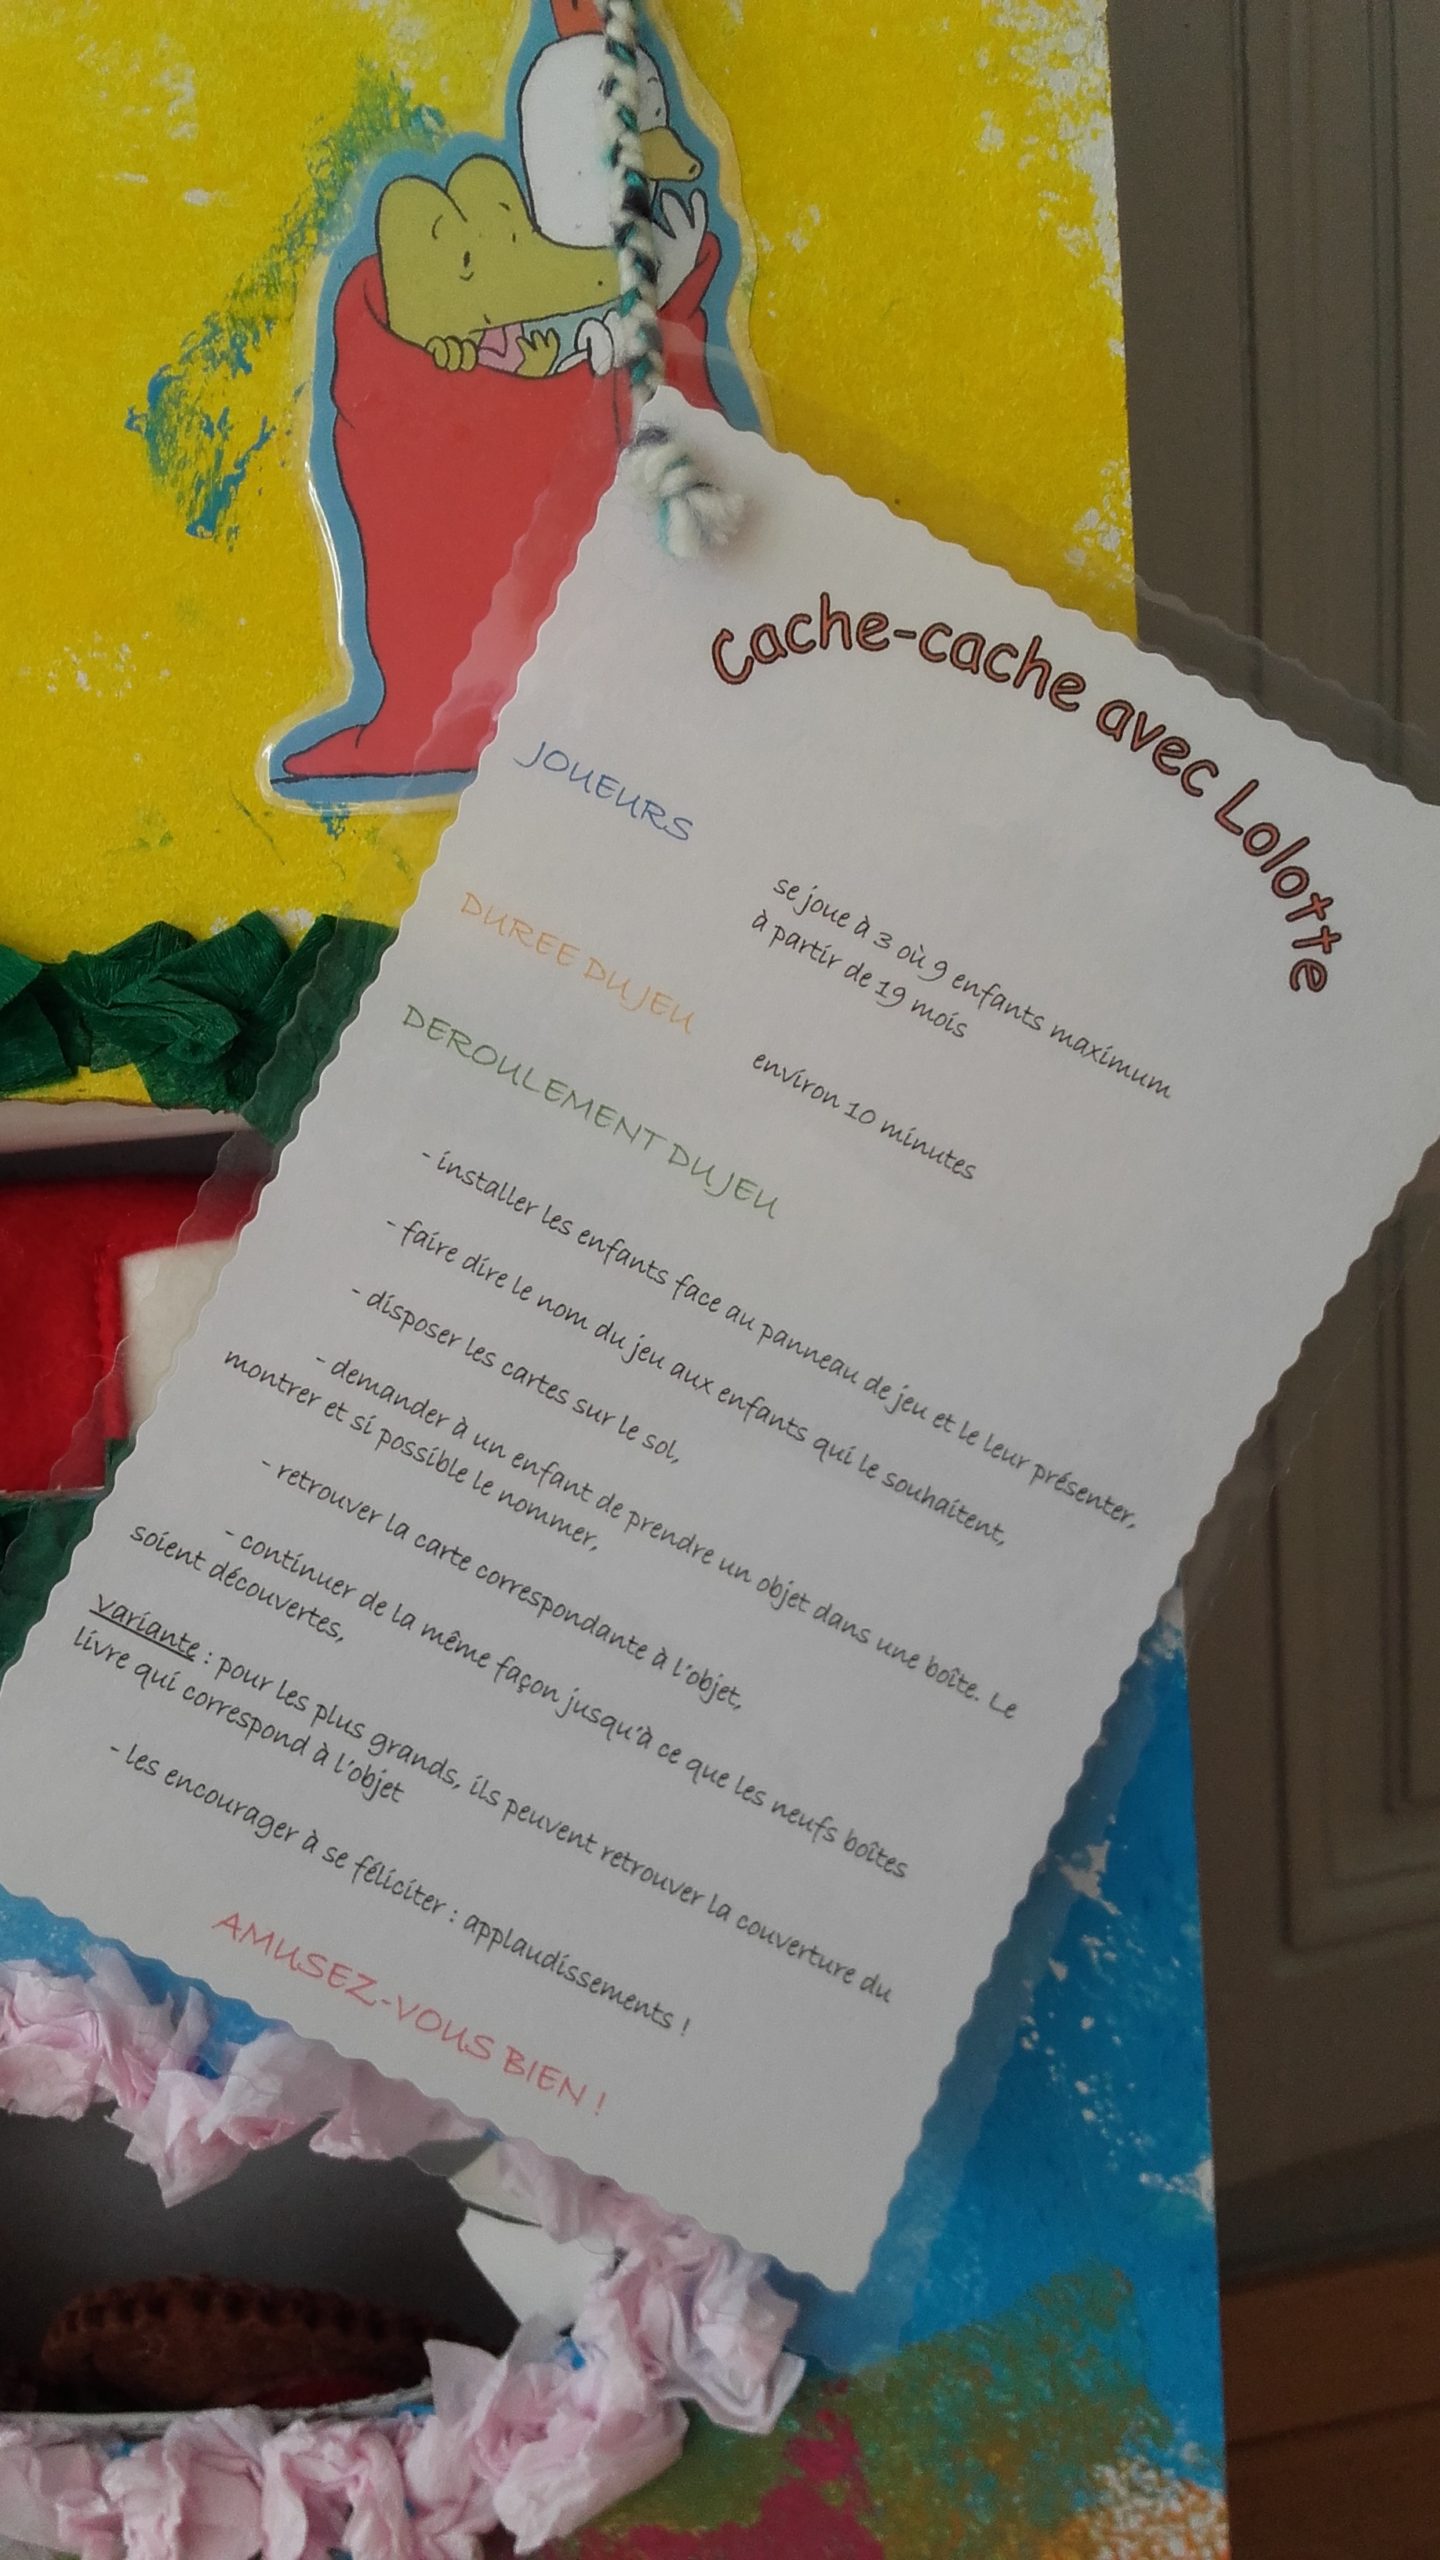 Cache-cache avec Lolotte
JOUEURS
se joue à 3 où 9 enfants maximum
à partir de 19 mois
DUREE DU JEU
environ 10 minutes
DEROULEMENT DU JEU
- installer les enfants face au panneau de jeu et le leur présenter,
- faire dire le nom du jeu aux enfants qui le souhaitent,
- disposer les cartes sur le sol,
- demander à un enfant de prendre un objet dans une boîte. Le
montrer et si possible le nommer,
- retrouver la carte correspondante à l'objet,
- continuer de la même façon jusqu'à ce que les neufs boîtes
soient découvertes,
variante : pour les plus grands, ils peuvent retrouver la couverture du
livre qui correspond à l'objet
- les encourager à se féliciter : applaudissements !
AMUSEZ-VOUS BIEN !